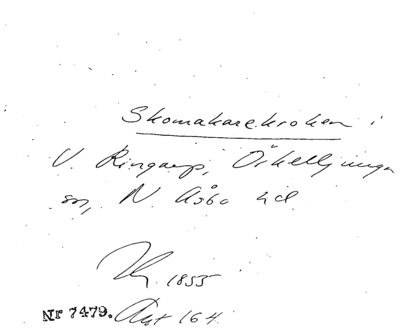 Skomakarekroken i
V. Ringarp, Örkelljunga
sn, N. Åsbo hd
1855
Nr 7479. Akt 164.